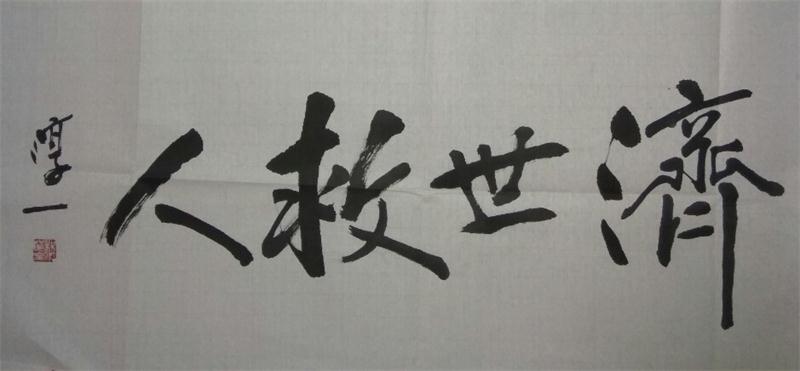 濟世救人
淳一